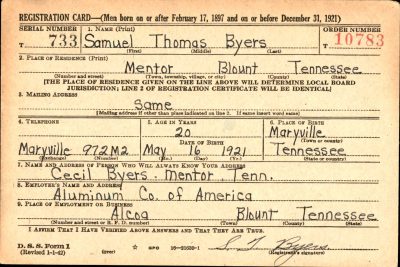 REGISTRATION CARD—(Men born on or after February 17, 1897 and on or before December 31, 1921)
SERIAL NUMBER 1. NAME (Print) ORDER NUMBER
T 733 Samuel Thomas Byers T 10783
(First) (Middle) (Last)
2. PLACE OF RESIDENCE (Print)
Mentor Blount Tennessee
(Number and street) (Town, township, village, or city) (County) (State)
[THE PLACE OF RESIDENCE GIVEN ON THE LINE ABOVE WILL DETERMINE LOCAL BOARD
JURISDICTION; LINE 2 OF REGISTRATION CERTIFICATE WILL BE IDENTICAL]
3. MAILING ADDRESS
Same
[Mailing address if other than place indicated on line 2. If same insert word same]
4. TELEPHONE 5. AGE IN YEARS 6. PLACE OF BIRTH
20 Maryville
DATE OF BIRTH (Town or county)
Maryville 972M2 May 16 1921 Tennessee
(Exchange) (Number) (Mo.) (Day) (Yr.) (State or country)
7. NAME AND ADDRESS OF PERSON WHO WILL ALWAYS KNOW YOUR ADDRESS
Cecil Byers - Mentor, Tenn.
8. EMPLOYER'S NAME AND ADDRESS
Aluminum Co. of America
9. PLACE OF EMPLOYMENT OR BUSINESS
Alcoa Blount Tennessee
(Number and street or R. F. D. number) (Town) (County) (State)
I AFFIRM THAT I HAVE VERIFIED ABOVE ANSWERS AND THAT THEY ARE TRUE.
D. S. S. Form 1 GPO 16-21630-1 S. T. Byers
(Revised 1-1-42) (Registrant's signature)